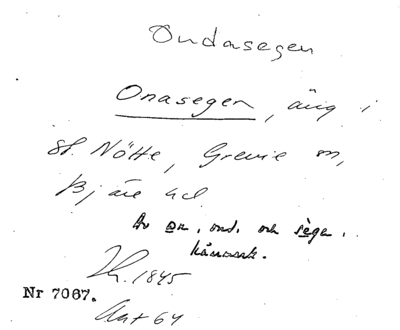 Ondasegen
Onasegen, äng i
St. Nötte, Grevie sn,
Bjäre hd.
Av on, ond. och sègen.
kärrmark.
1845
Nr 7067.
Ant 64